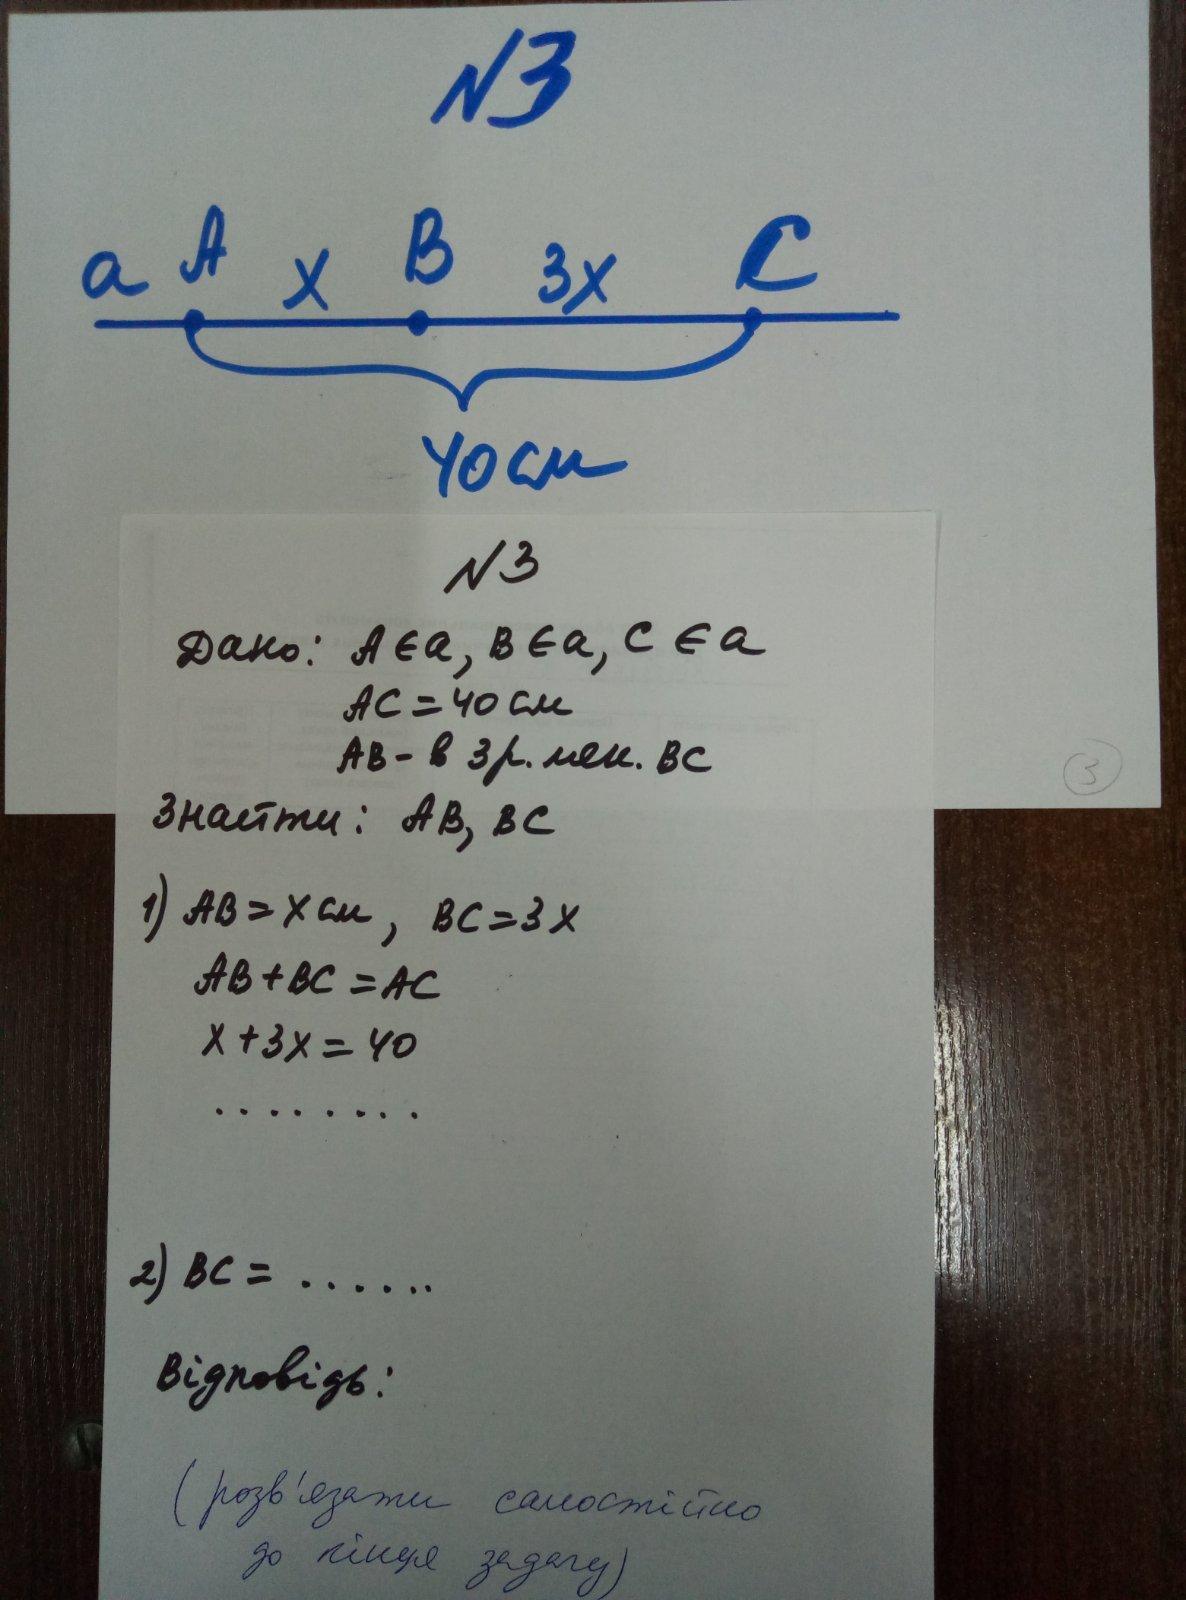 №3
a A x B 3x C
40 см
№3
Дано: A ∈ a, B ∈ a, C ∈ a
AC = 40 см
AB - в 3 р. мен. BC
Знайти: AB, BC
1) AB = x см, BC = 3x
AB + BC = AC
x + 3x = 40
.........
2) BC = ......
Відповідь:
(розв'язати самостійно
до кінця задачу)
3